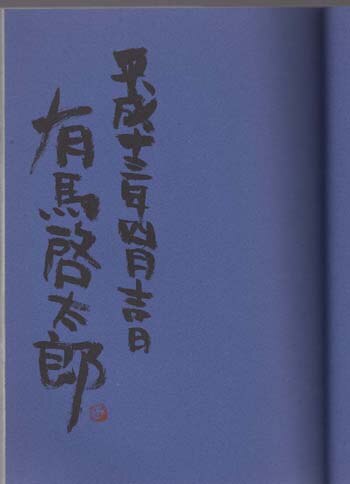 平成十三年四月吉日
有馬啓太郎